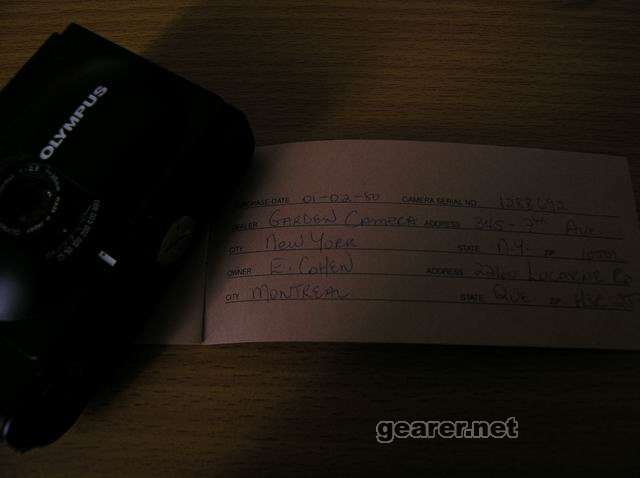 OLYMPUS
PURCHASE DATE 01-02-80 CAMERA SERIAL NO. 1288692
DEALER GARDEN CAMERA ADDRESS 345-7th AVE
CITY NEW YORK STATE N.Y. ZIP
OWNER E. COHEN ADDRESS
CITY MONTREAL STATE QUE ZIP
gearer.net